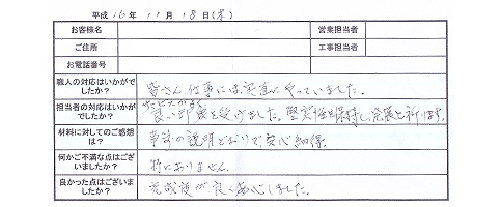 平成 16 年 11 月 18 日(木)
お客様名
営業担当者
ご住所
工事担当者
お電話番号
職人の対応はいかがでしたか?
皆さん、仕事には実直にやっていました。
担当者の対応はいかがでしたか?
良い印象を受けました。堅実性を保持し、発展を祈ります。
材料に対してのご感想は?
事前の説明どおりで、安心納得。
何かご不満な点はございましたか?
特にありません。
良かった点はございましたか?
完成度が良く安心しました。